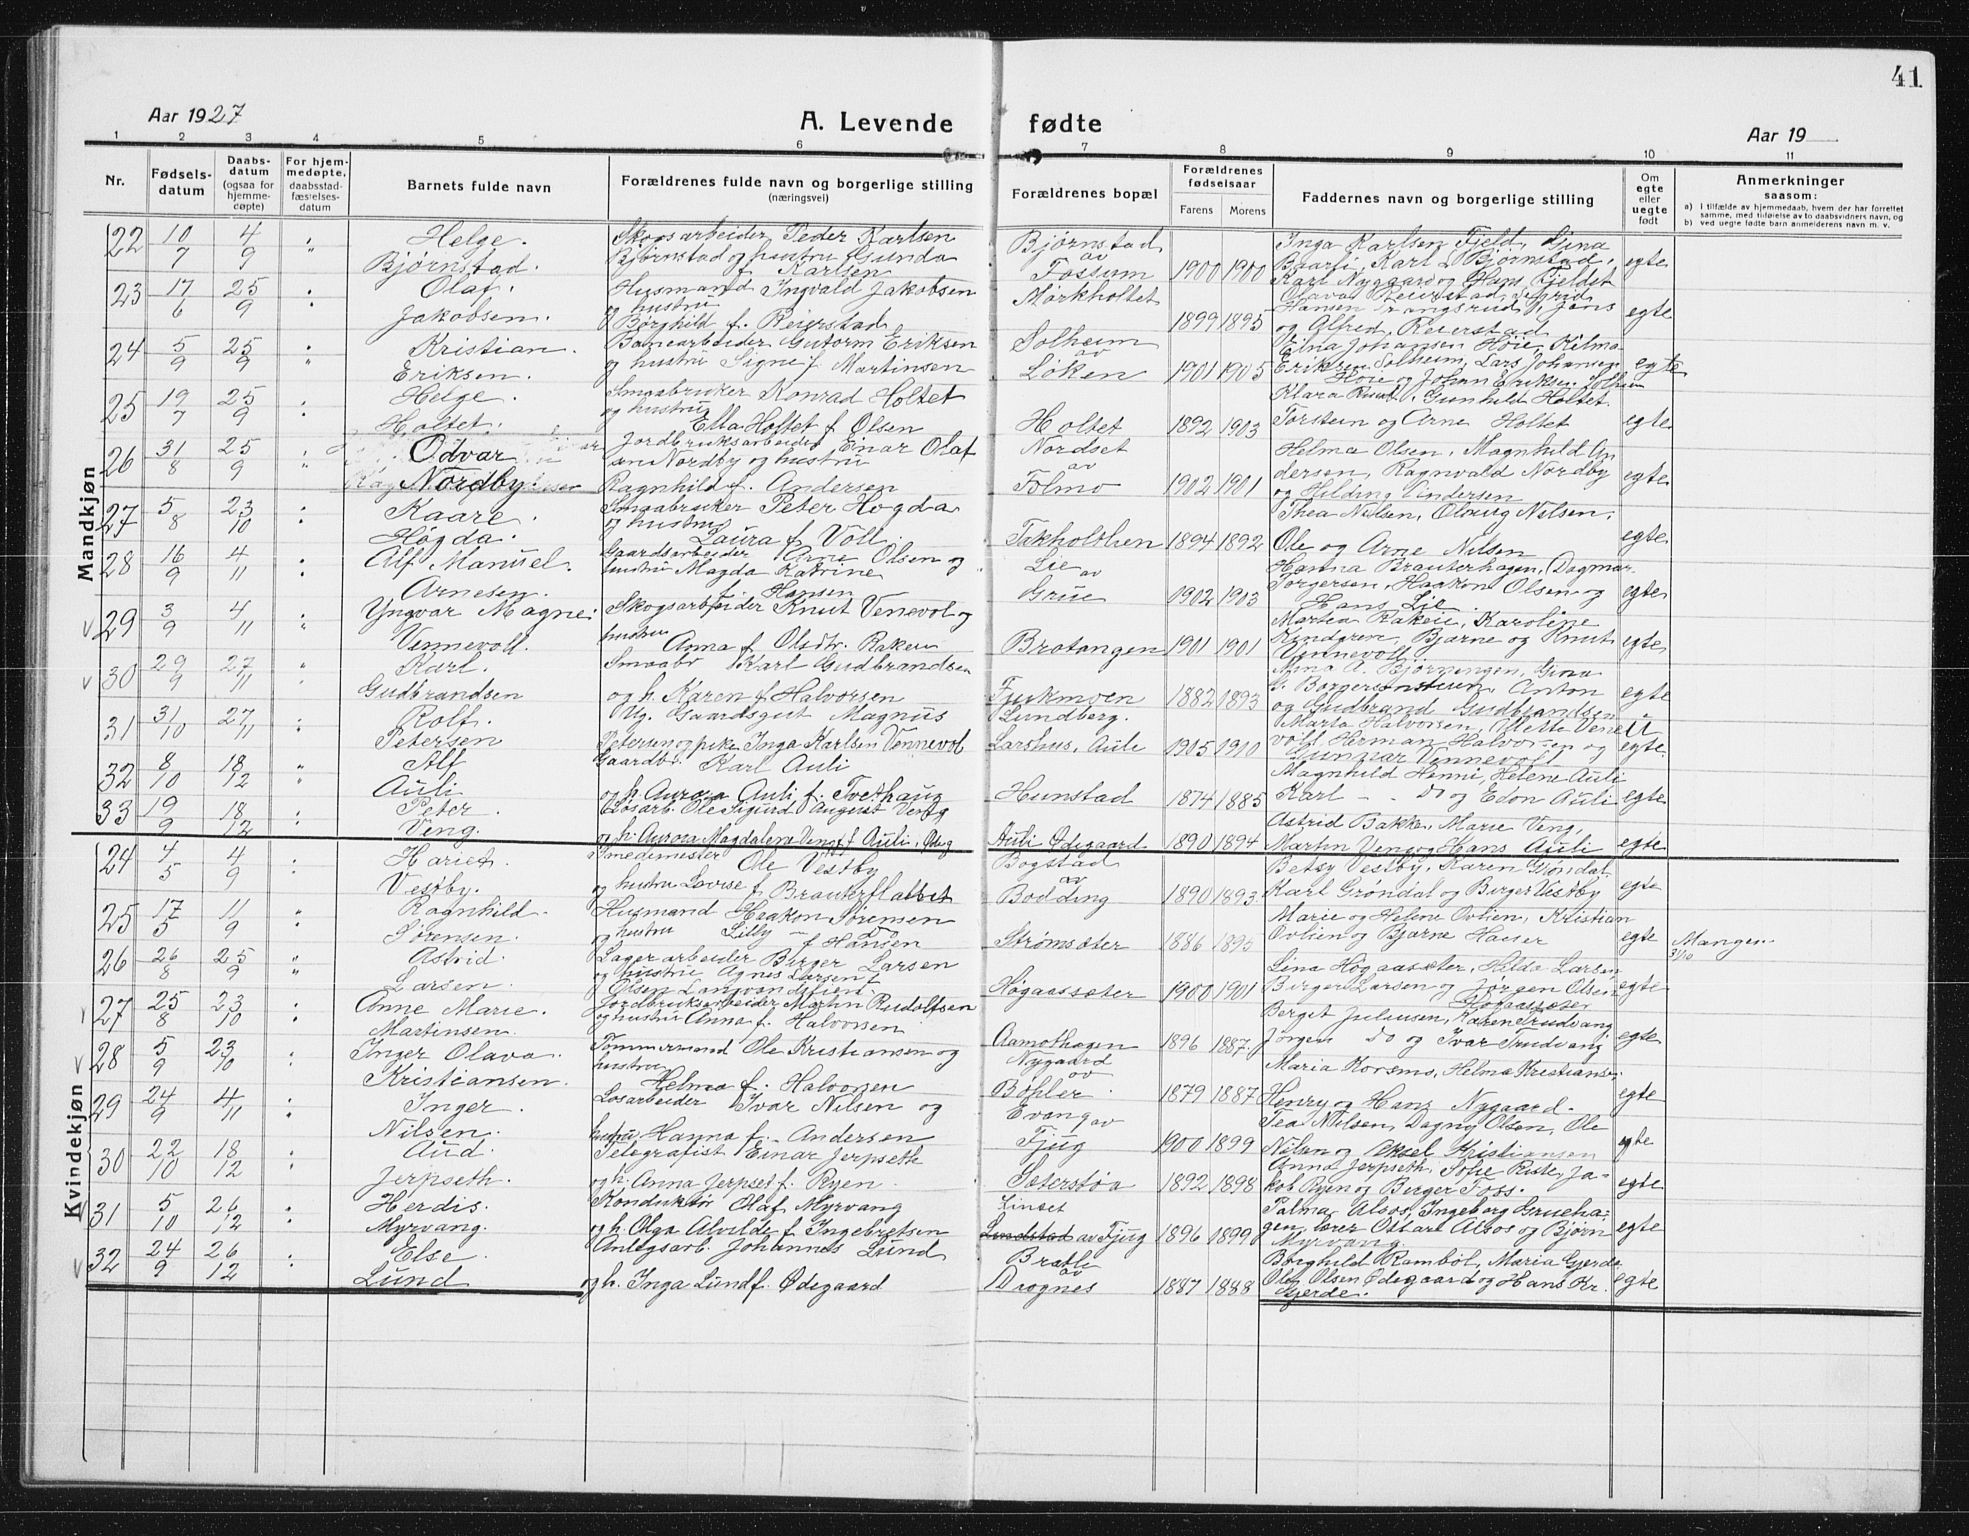 41
Aar 1927
A. Levende fødte
Aar 19
1 2 3 4 5 6 7 8 9 10 11
Nr.
Fødsels-
datum
Daabs-
datum
(ogsaa for
hjemme-
døpte)
For hjem-
medøpte,
daabsstad-
fæstelses-
datum
Barnets fulde navn
Forældrenes fulde navn og borgerlige stilling
(næringsvei)
Forældrenes bopæl
Forældrenes
fødselsaar
Farens Morens
Faddernes navn og borgerlige stilling
Om
egte
eller
uegte
født
Anmerkninger
saasom:
a) I tilfælde av hjemmedaab, hvem der har forrettet
samme, med tilføielse av to daabsvidners navn, og
b) ved uegte fødte barn anmelderens navn m. v.
Mandkjøn
22 10/7 4/9 " Helge Bjørnstad. Skogsarbeider Peder Karlsen
Bjørnstad og hustru Gunda
f. Karlsen
Bjørnstad
av
Fossum 1900 1900 Inga Karlsen Fjeld, Gina
Baarli, Karl Bjørnstad,
Karl Nyggaard og Hans Fjeldet egte
23 17/6 25/9 " Olaf. Jakobsen. Husmand Ingvald Jakobsen
og hustru
Borghild f. Reierstad
Mørkholtet 1899 1895 Olava Reierstad, Sigrid
Hansen Vangsrud, Jens
og Alfred Reierstad egte
24 5/9 25/9 " Kristian. Eriksen. Banearbeider Gutorm Eriksen
og hustru Signe f. Martinsen
Solheim
av
Løken 1901 1905 Elna Johansen Høie, Hilma
Eriksen Solheim, Lars Johansen
Høie og Johan Eriksen Solheim egte
25 19/7 25/9 " Helge. Holtet. Smaabruker Konrad Holtet
og hustru
Ella Holtet f. Olsen
Holtet 1892 1903 Klara Ruud, Gunhild Holtet.
Torstein og Arne Holtet egte
26 31/8 25/9 " Odvar Nordby. Jordbruksarbeider Einar Olaf
sen Nordby og hustru
Ragnhild f. Andersen
Nordset
av
Folmo 1902 1901 Helma Olsen, Magnhild An
dersen, Ragnvald Nordby
og Hilding Andersen egte
27 5/8 23/10 " Kaare. Høgda. Smaabruker Peter Hogda
og hustru
Laura f. Voll.
Takholthen 1894 1892 Thea Nilsen, Olaug Nilsen,
Ole og Arne Nilsen egte
28 16/9 4/11 " Alf Manuel. Arnesen. Gaardsarbeider Arne Olsen og
hustru Magda Katrine
f. Hansen
Lie
av
Grue 1902 1903 Hanna Brauterhagen, Dagmar
Torgersen, Haakon Olsen og
Hans Lie. egte
29 3/9 4/11 " Yngvar Magne. Vennevoll. Skogsarbeider Knut Venevol og
hustru
Anna f. Olsdtr. Rakeie
Brotangen 1901 1901 Martea Rakeie, Karoline
Kundgren, Bjarne og Knut
Vennevoll egte
30 29/9 27/11 " Karl. Gudbrandsen Smaabr Karl Gudbrandsen
og h. Karen f. Halvorsen
Furkmoen 1882 1893 Nina A. Bjørnengen, Gina
G. Borgersonsteren, Anton
og Gudbrand Gudbrandsen egte
31 31/10 27/11 " Rolf. Petersen Ug. Gaardsgut Magnus
Petersen og pike Inga Karlsen Vennevol
Lundberg.
Larshus, Auli 1905 1910 Marta Halvorsen, Odette Vene
voll, Herman Halvorsen og
Gunnar Vennevoll U
egte.
32 8/10 18/12 " Alf Auli Gaardbr. Karl Auli
og h. Aurora Auli f. Tvethaug
Hunstad 1874 1885 Magnhild Henni, Helene Auli
Karl - Do og Edon Auli egte
33 19/9 18/12 " Peter Veng. Løsarb. Ole Sigurd August Veng
og h. Aurora Magdalene Veng f. Auli, Ødeg
Auli Ødegaard 1890 1894 Astrid Bakke, Marie Veng,
Martin Veng og Hans Auli egte
Kvindekjøn
24 4/5 4/9 " Hariet. Vestby. Smedemester Ole Vestby
og hustru Lovise f. Brauterflabbet
Bogstad
av
Bodding 1890 1893. Betsy Vestby, Karen Grøndal,
Karl Grøndal og Birger Vestby egte
25 17/5 11/9 " Ragnhild. Sørensen. Husmand Haakon Sørensen
og hustru Lilly - Do
f. Hansen
Strømsæter 1886 1895 Marie og Helene Ovlien, Kristian
Ovlien og Bjarne Haeser egte Mangen
31/10
26 26/8 25/9 " Astrid. Larsen. Lagerarbeider Birger Larsen
og hustru Agnes Larsen f.
Olsen Langvandsfjend.
Høgaassæter 1900 1901 Lina Høgaassæter, Hilda Larsen
Birger Larsen og Jørgen Olsen
Høgaassæter egte
27 25/8 23/10 " Anne Marie. Martinsen. Jordbruksarbeider Martin Rudolfsen
og hustru Anna f. Halvorsen
Aamothagen 1896 1887. Berget Juliussen, Karen Trudvang
Jørgen Do og Ivar Trudvang egte
28 5/9 23/10 " Inger Olava. Kristiansen. Tømmermand Ole Kristiansen og
hustru
Helma f. Halvorsen
Nygaard
av
Bøhler 1879 1887 Maria Korsmo, Helma Kristiansen
Henry og Hans Nygaard. egte
29 24/9 4/11 " Inger. Nilsen. Løsarbeider Ivar Nilsen og
hustru Hanna f. Andersen
Evang av
Fjug 1900 1899 Tea Nilsen, Dagny Olsen, Ole
Nilsen og Aksel Kristiansen egte
30 22/10 18/12 " Aud. Jerpseth. Telegrafist Einar Jerpseth
og h. Anna Jerpset f. Ryen.
Sæterstøa 1892 1898 Anna Jerpseth, Sofie Riste, Ja-
kob Ryen og Berger Foss. egte
31 5/10 26/12 " Herdis. Myrvang. Konduktør Olaf Myrvang
og h. Olga Alvilde f. Ingebretsen
Linset
Lundstad av Fjug 1896 1899 Palma Alsos, Ingeborg Grueha-
gen, lærer Ottar Alsos og Bjørn
Myrvang egte
32 24/9 26/12 " Else. Lund Anlegsarb. Johannes Lund
og h. Inga Lund f. Ødegaard
Bratli
av
Drognes 1887 1888 Borghild Rambøl, Maria Gjerde
Ole Olsen Ødegaard og Hans Kr.
Gjerde. egte